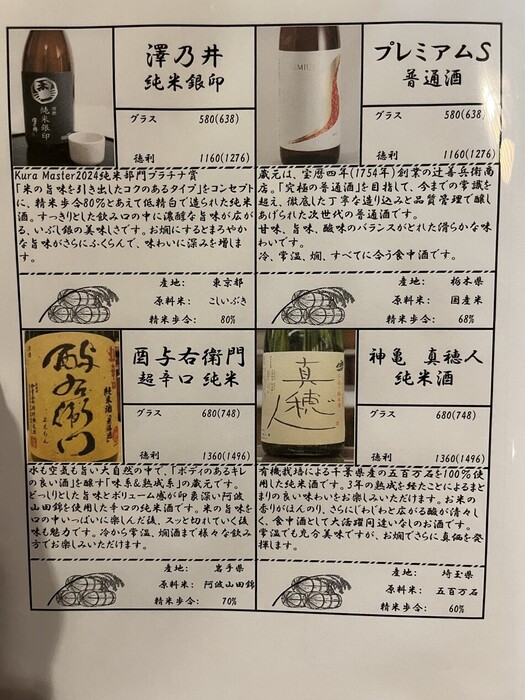 澤乃井
純米銀印
グラス 580(638)
徳利 1160(1276)
Kura Master2024純米部門プラチナ賞
「米の旨味を引き出したコクのあるタイプ」をコンセプト
に、精米歩合80%とあえて低精白で造られた純米
酒。すっきりとした飲み口の中に濃醇な旨味が広が
る、いぶし銀の美味しさです。お燗にするとまろやか
な旨味がさらにふくらんで、味わいに深みを増しま
す。
産地: 東京都
原料米: こしいぶき
精米歩合: 80%
プレミアムS
普通酒
グラス 580(638)
徳利 1160(1276)
蔵元は、宝暦四年(1754年)創業の辻善兵衛商
店。「究極の普通酒」を目指して、今までの常識を
超え、徹底した丁寧な造り込みと品質管理で醸し
あげられた次世代の普通酒です。
甘味、旨味、酸味のバランスがとれた滑らかな味
わいです。
冷、常温、燗、すべてに合う食中酒です。
産地: 栃木県
原料米: 国産米
精米歩合: 68%
酉与右衛門
超辛口 純米
グラス 680(748)
徳利 1360(1496)
水も空気も旨い大自然の中で、「ボディのあるキレ
の良い酒」を醸す「味系&熟成系」の蔵元です。
どっしりとした旨味とボリューム感が印象深い阿波
山田錦を使用した辛口の純米酒です。米の旨味を
口の中いっぱいに楽しんだ後、スッと切れていく後
味も魅力です。冷から常温、燗酒まで様々な飲み
方でお楽しみいただけます。
産地: 岩手県
原料米: 阿波山田錦
精米歩合: 70%
神亀 真穂人
純米酒
グラス 680(748)
徳利 1360(1496)
有機栽培による千葉県産の五百万石を100%使
用した純米酒です。3年の熟成を経たことによるまと
まりの良い味わいをお楽しみいただけます。お米の
香りがほんのり、さらにじわじわと広がる酸が清々し
く、食中酒として大活躍間違いなしのお酒です。
常温でも充分美味ですが、お燗でさらに真価を発
揮します。
産地: 埼玉県
原料米: 五百万石
精米歩合: 60%
純米銀印
酉与右衛門
真穂人